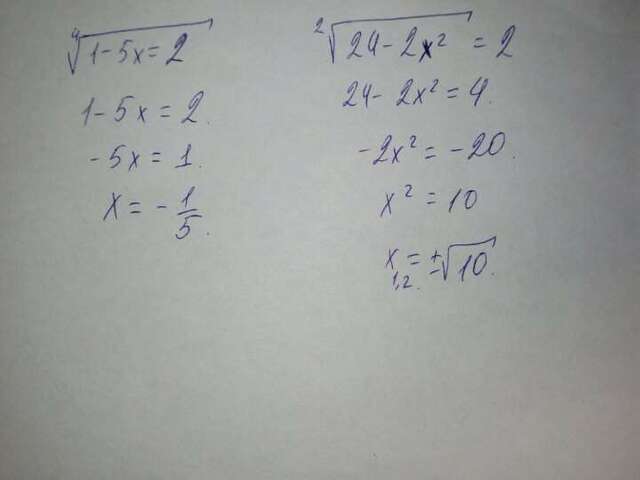 ⁴√1-5x=2
1-5x=2.
-5x=1.
x=-1/5.
²√24-2x²=2
24-2x²=4.
-2x²=-20.
x²=10
x1,2.=±√10.